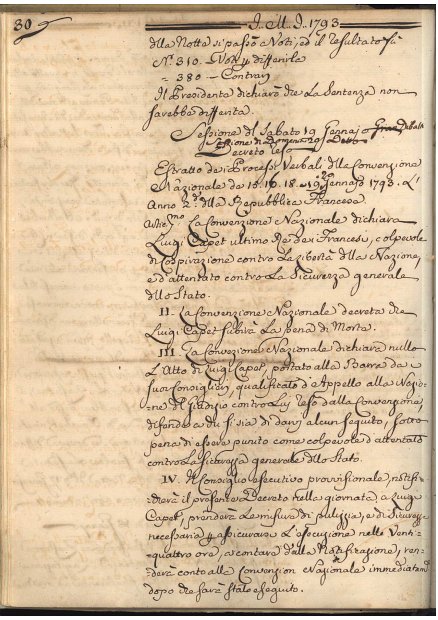 30 J. M. J. 1793
dlla Notte si passò Voti, ed il resultato fù
N.° 310 — Voti p differirla
= 380 — Contrarj
Il Presidente dichiarò che La Sentenza non
sarebbe differita.
Sessione dl Sabato 19 Gennajo
Sessione di Domenica 20 Detto
Decreto Reso
Estratto de Processi Verbali dlla Convenzione
Nazionale de 15. 16. 18. 19. Gennajo 1793. L'
Anno 2.do dlla Repubblica Francese.
La Convenzione Nazionale dichiara
Luigi Capet ultimo Re de Francesi, colpevole
di Cospirazione contro La libertà dlla Nazione,
e d'attentato contro La Sicurezza generale
dllo Stato.
II. La Convenzione Nazionale decreta che
Luigi Capet subirà La pena di Morte.
III. La Convezione Nazionale dichiara nullo
L'Atto di Luigi Capet, portato alla Barra da
suoi Consiglieri, qualificato d'Appello alla Nazio-
=ne dl giudizio contro Lui reso dalla Convenzione,
difende a chi si sia di darvj alcun seguito, sotto
pena di essere punito come colpevole d'attentato
contro La sicurezza generale dllo Stato.
IV. Il Consiglio esecutivo provvisionale, notifi-
=cherà il presente Decreto nella giornata a Luigi
Capet, prenderà Le misure di pulizzia, e di Sicurezza
necessarie p assicurare L'esecuzione nelle Venti-
=quattro ore, a contare dalla Notificazione, ren-
=derà conto alla Convenzion Nazionale immediatam
dopo che sarà stato eseguito.